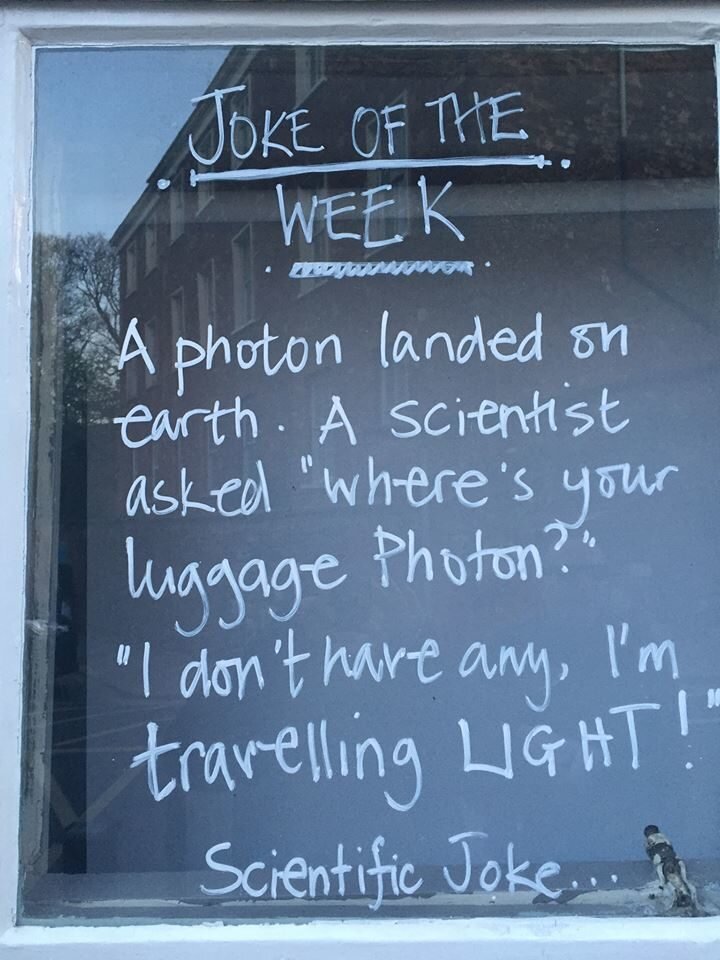 JOKE OF THE
WEEK
A photon landed on
earth. A scientist
asked "where's your
luggage Photon?"
"I don't have any, I'm
travelling LIGHT!"
Scientific Joke...